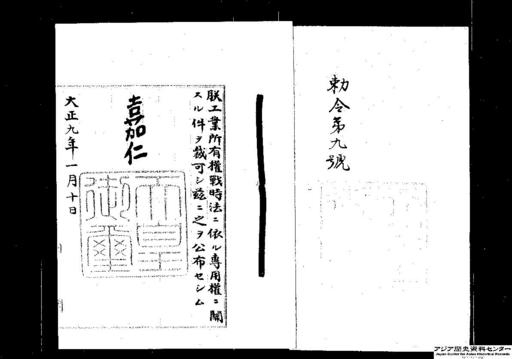 勅令第九號
朕工業所有權戰時法ニ依ル専用權ニ關
スル件ヲ裁可シ茲ニ之ヲ公布セシム
嘉仁
天皇
御璽
大正九年一月十日
アジア歴史資料センター
Japan Center for Asian Historical Records